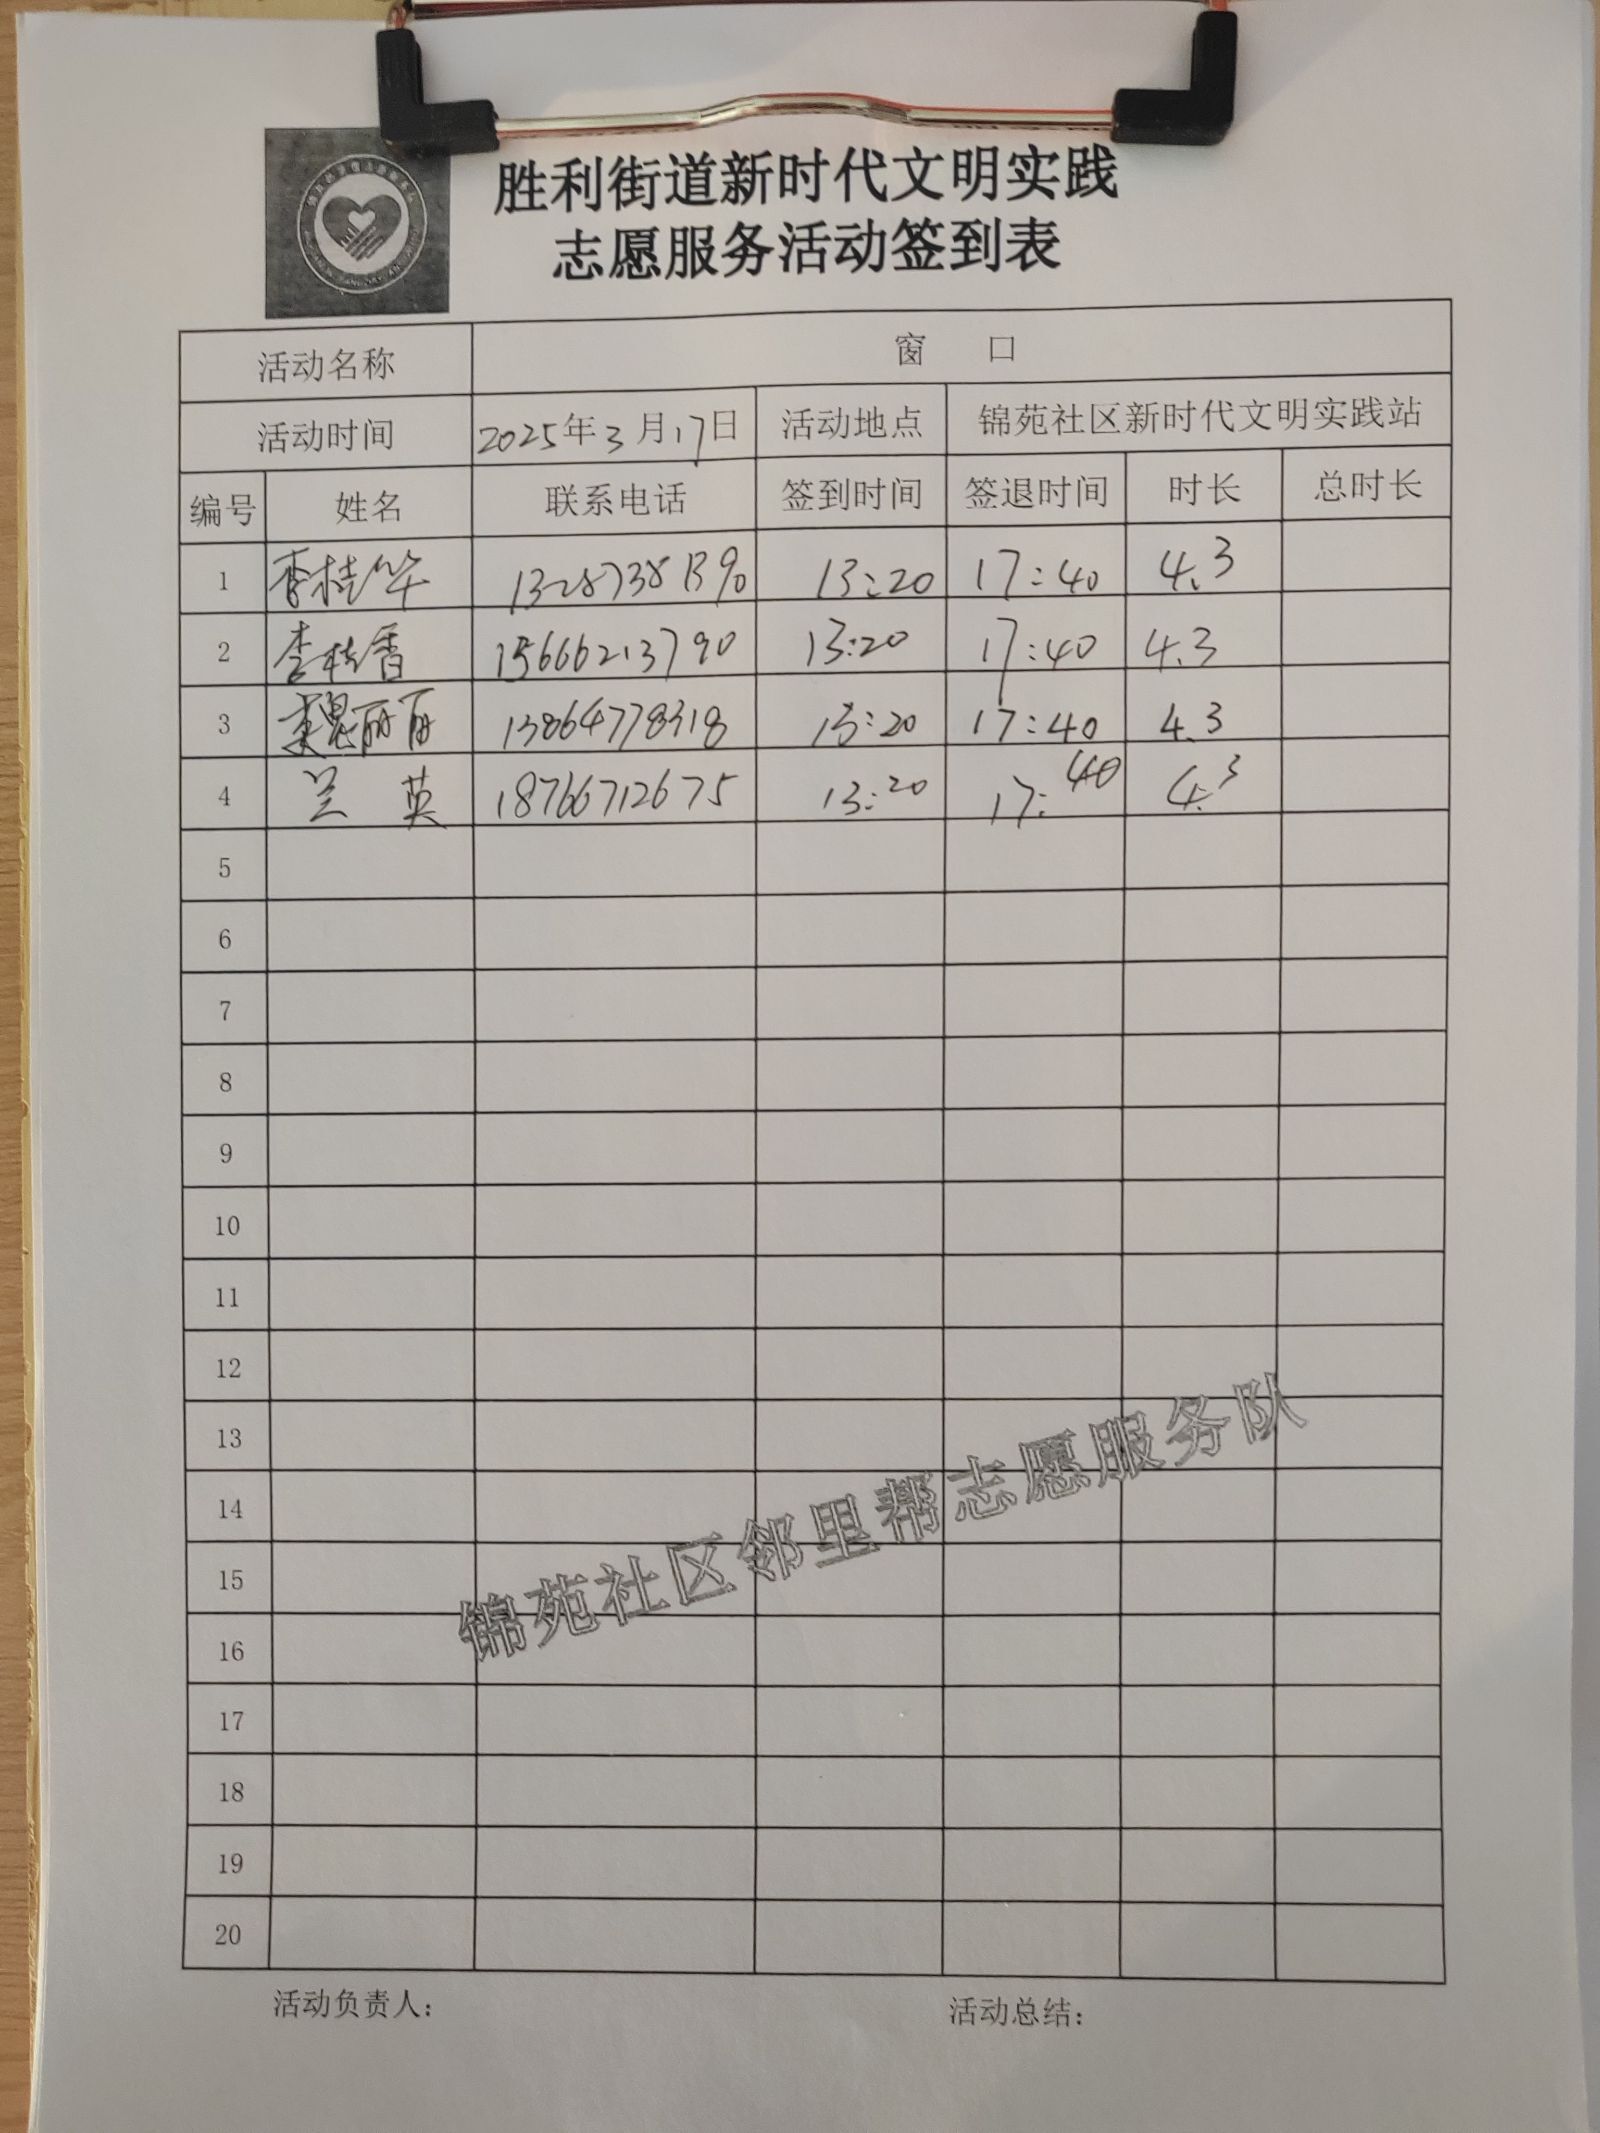 胜利街道新时代文明实践
志愿服务活动签到表
活动名称 窗 口
活动时间 2025年3月17日 活动地点 锦苑社区新时代文明实践站
编号 姓名 联系电话 签到时间 签退时间 时长 总时长
1 李桂华 13287381390 13:20 17:40 4.3
2 李桂香 15666213790 13:20 17:40 4.3
3 魏丽丽 13864778318 13:20 17:40 4.3
4 兰 英 18766712675 13:20 17:40 4.3
5
6
7
8
9
10
11
12
13
14
15
16
17
18
19
20
锦苑社区邻里帮志愿服务队
活动负责人: 活动总结: